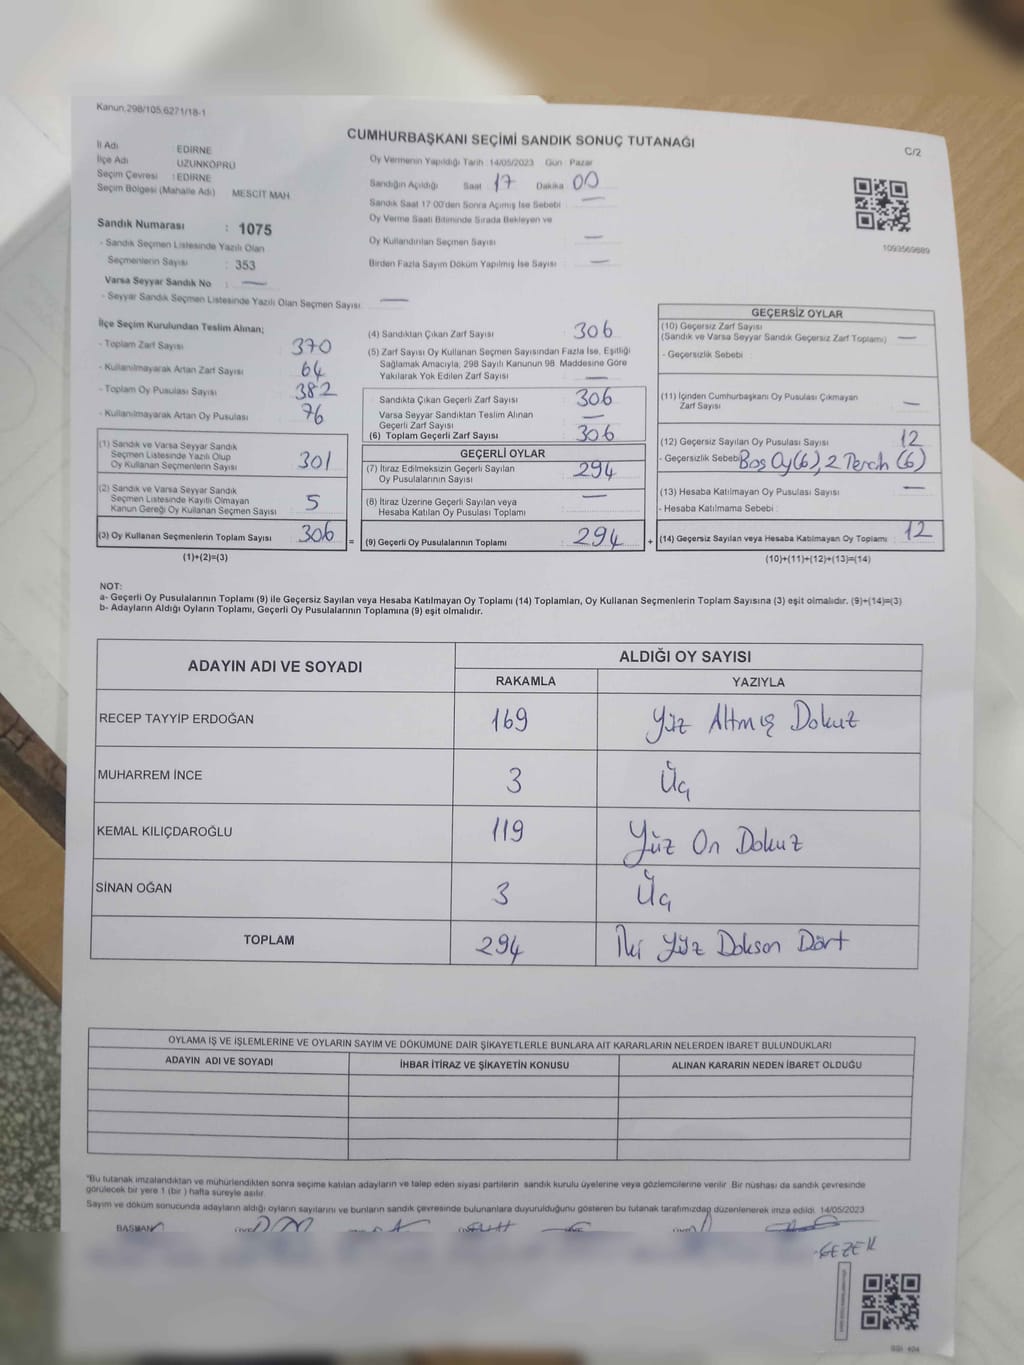 Kanun.298/105.6271/18-1
CUMHURBAŞKANI SEÇİMİ SANDIK SONUÇ TUTANAĞI
C/2
İl Adı : EDİRNE
İlçe Adı UZUNKÖPRÜ
Seçim Çevresi : EDİRNE
Seçim Bölgesi (Mahalle Adı) MESCİT MAH
Sandık Numarası : 1075
- Sandık Seçmen Listesinde Yazılı Olan
Seçmenlerin Sayısı : 353
Varsa Seyyar Sandık No : —
- Seyyar Sandık Seçmen Listesinde Yazılı Olan Seçmen Sayısı —
Oy Vermenin Yapıldığı Tarih : 14/05/2023 Gün : Pazar
Sandığın Açıldığı Saat 17 Dakika 00
Sandık Saat 17:00'den Sonra Açımış İse Sebebi : —
Oy Verme Saati Bitiminde Sırada Bekleyen ve
Oy Kullandırılan Seçmen Sayısı : —
Birden Fazla Sayım Döküm Yapılmış İse Sayısı : —
1093569889
İlçe Seçim Kurulundan Teslim Alınan;
- Toplam Zarf Sayısı 370
- Kullanılmayarak Artan Zarf Sayısı 64
- Toplam Oy Pusulası Sayısı 382
- Kullanılmayarak Artan Oy Pusulası 76
(1) Sandık ve Varsa Seyyar Sandık
Seçmen Listesinde Yazılı Olup
Oy Kullanan Seçmenlerin Sayısı 301
(2) Sandık ve Varsa Seyyar Sandık
Seçmen Listesinde Kayıtlı Olmayan
Kanun Gereği Oy Kullanan Seçmen Sayısı 5
(3) Oy Kullanan Seçmenlerin Toplam Sayısı 306 =
(1)+(2)=(3)
(4) Sandıktan Çıkan Zarf Sayısı : 306
(5) Zarf Sayısı Oy Kullanan Seçmen Sayısından Fazla İse, Eşitliği
Sağlamak Amacıyla, 298 Sayılı Kanunun 98. Maddesine Göre
Yakılarak Yok Edilen Zarf Sayısı : —
Sandıkta Çıkan Geçerli Zarf Sayısı : 306
Varsa Seyyar Sandıktan Teslim Alınan
Geçerli Zarf Sayısı : —
(6) Toplam Geçerli Zarf Sayısı : 306
GEÇERLİ OYLAR
(7) İtiraz Edilmeksizin Geçerli Sayılan
Oy Pusulalarının Sayısı : 294
(8) İtiraz Üzerine Geçerli Sayılan veya
Hesaba Katılan Oy Pusulası Toplamı : —
(9) Geçerli Oy Pusulalarının Toplamı : 294 +
GEÇERSİZ OYLAR
(10) Geçersiz Zarf Sayısı
(Sandık ve Varsa Seyyar Sandık Geçersiz Zarf Toplamı) : —
- Geçersizlik Sebebi :
(11) İçinden Cumhurbaşkanı Oy Pusulası Çıkmayan
Zarf Sayısı : —
(12) Geçersiz Sayılan Oy Pusulası Sayısı : 12
- Geçersizlik Sebebi Boş Oy(6), 2 Tercih (6)
(13) Hesaba Katılmayan Oy Pusulası Sayısı : —
- Hesaba Katılmama Sebebi :
(14) Geçersiz Sayılan veya Hesaba Katılmayan Oy Toplamı : 12
(10)+(11)+(12)+(13)=(14)
NOT:
a- Geçerli Oy Pusulalarının Toplamı (9) ile Geçersiz Sayılan veya Hesaba Katılmayan Oy Toplamı (14) Toplamları, Oy Kullanan Seçmenlerin Toplam Sayısına (3) eşit olmalıdır. (9)+(14)=(3)
b- Adayların Aldığı Oyların Toplamı, Geçerli Oy Pusulalarının Toplamına (9) eşit olmalıdır.
ADAYIN ADI VE SOYADI ALDIĞI OY SAYISI
RAKAMLA YAZIYLA
RECEP TAYYİP ERDOĞAN 169 Yüz Altmış Dokuz
MUHARREM İNCE 3 Üç
KEMAL KILIÇDAROĞLU 119 Yüz On Dokuz
SİNAN OĞAN 3 Üç
TOPLAM 294 İki Yüz Doksan Dört
OYLAMA İŞ VE İŞLEMLERİNE VE OYLARIN SAYIM VE DÖKÜMÜNE DAİR ŞİKAYETLERLE BUNLARA AİT KARARLARIN NELERDEN İBARET BULUNDUKLARI
ADAYIN ADI VE SOYADI İHBAR İTİRAZ VE ŞİKAYETİN KONUSU ALINAN KARARIN NEDEN İBARET OLDUĞU
"Bu tutanak imzalandıktan ve mühürlendikten sonra seçime katılan adayların ve talep eden siyasi partilerin sandık kurulu üyelerine veya gözlemcilerine verilir. Bir nüshası da sandık çevresinde
görülecek bir yere 1 (bir ) hafta süreyle asılır.
Sayım ve döküm sonucunda adayların aldığı oyların sayılarını ve bunların sandık çevresinde bulunanlara duyurulduğunu gösteren bu tutanak tarafımızdan düzenlenerek imza edildi. 14/05/2023